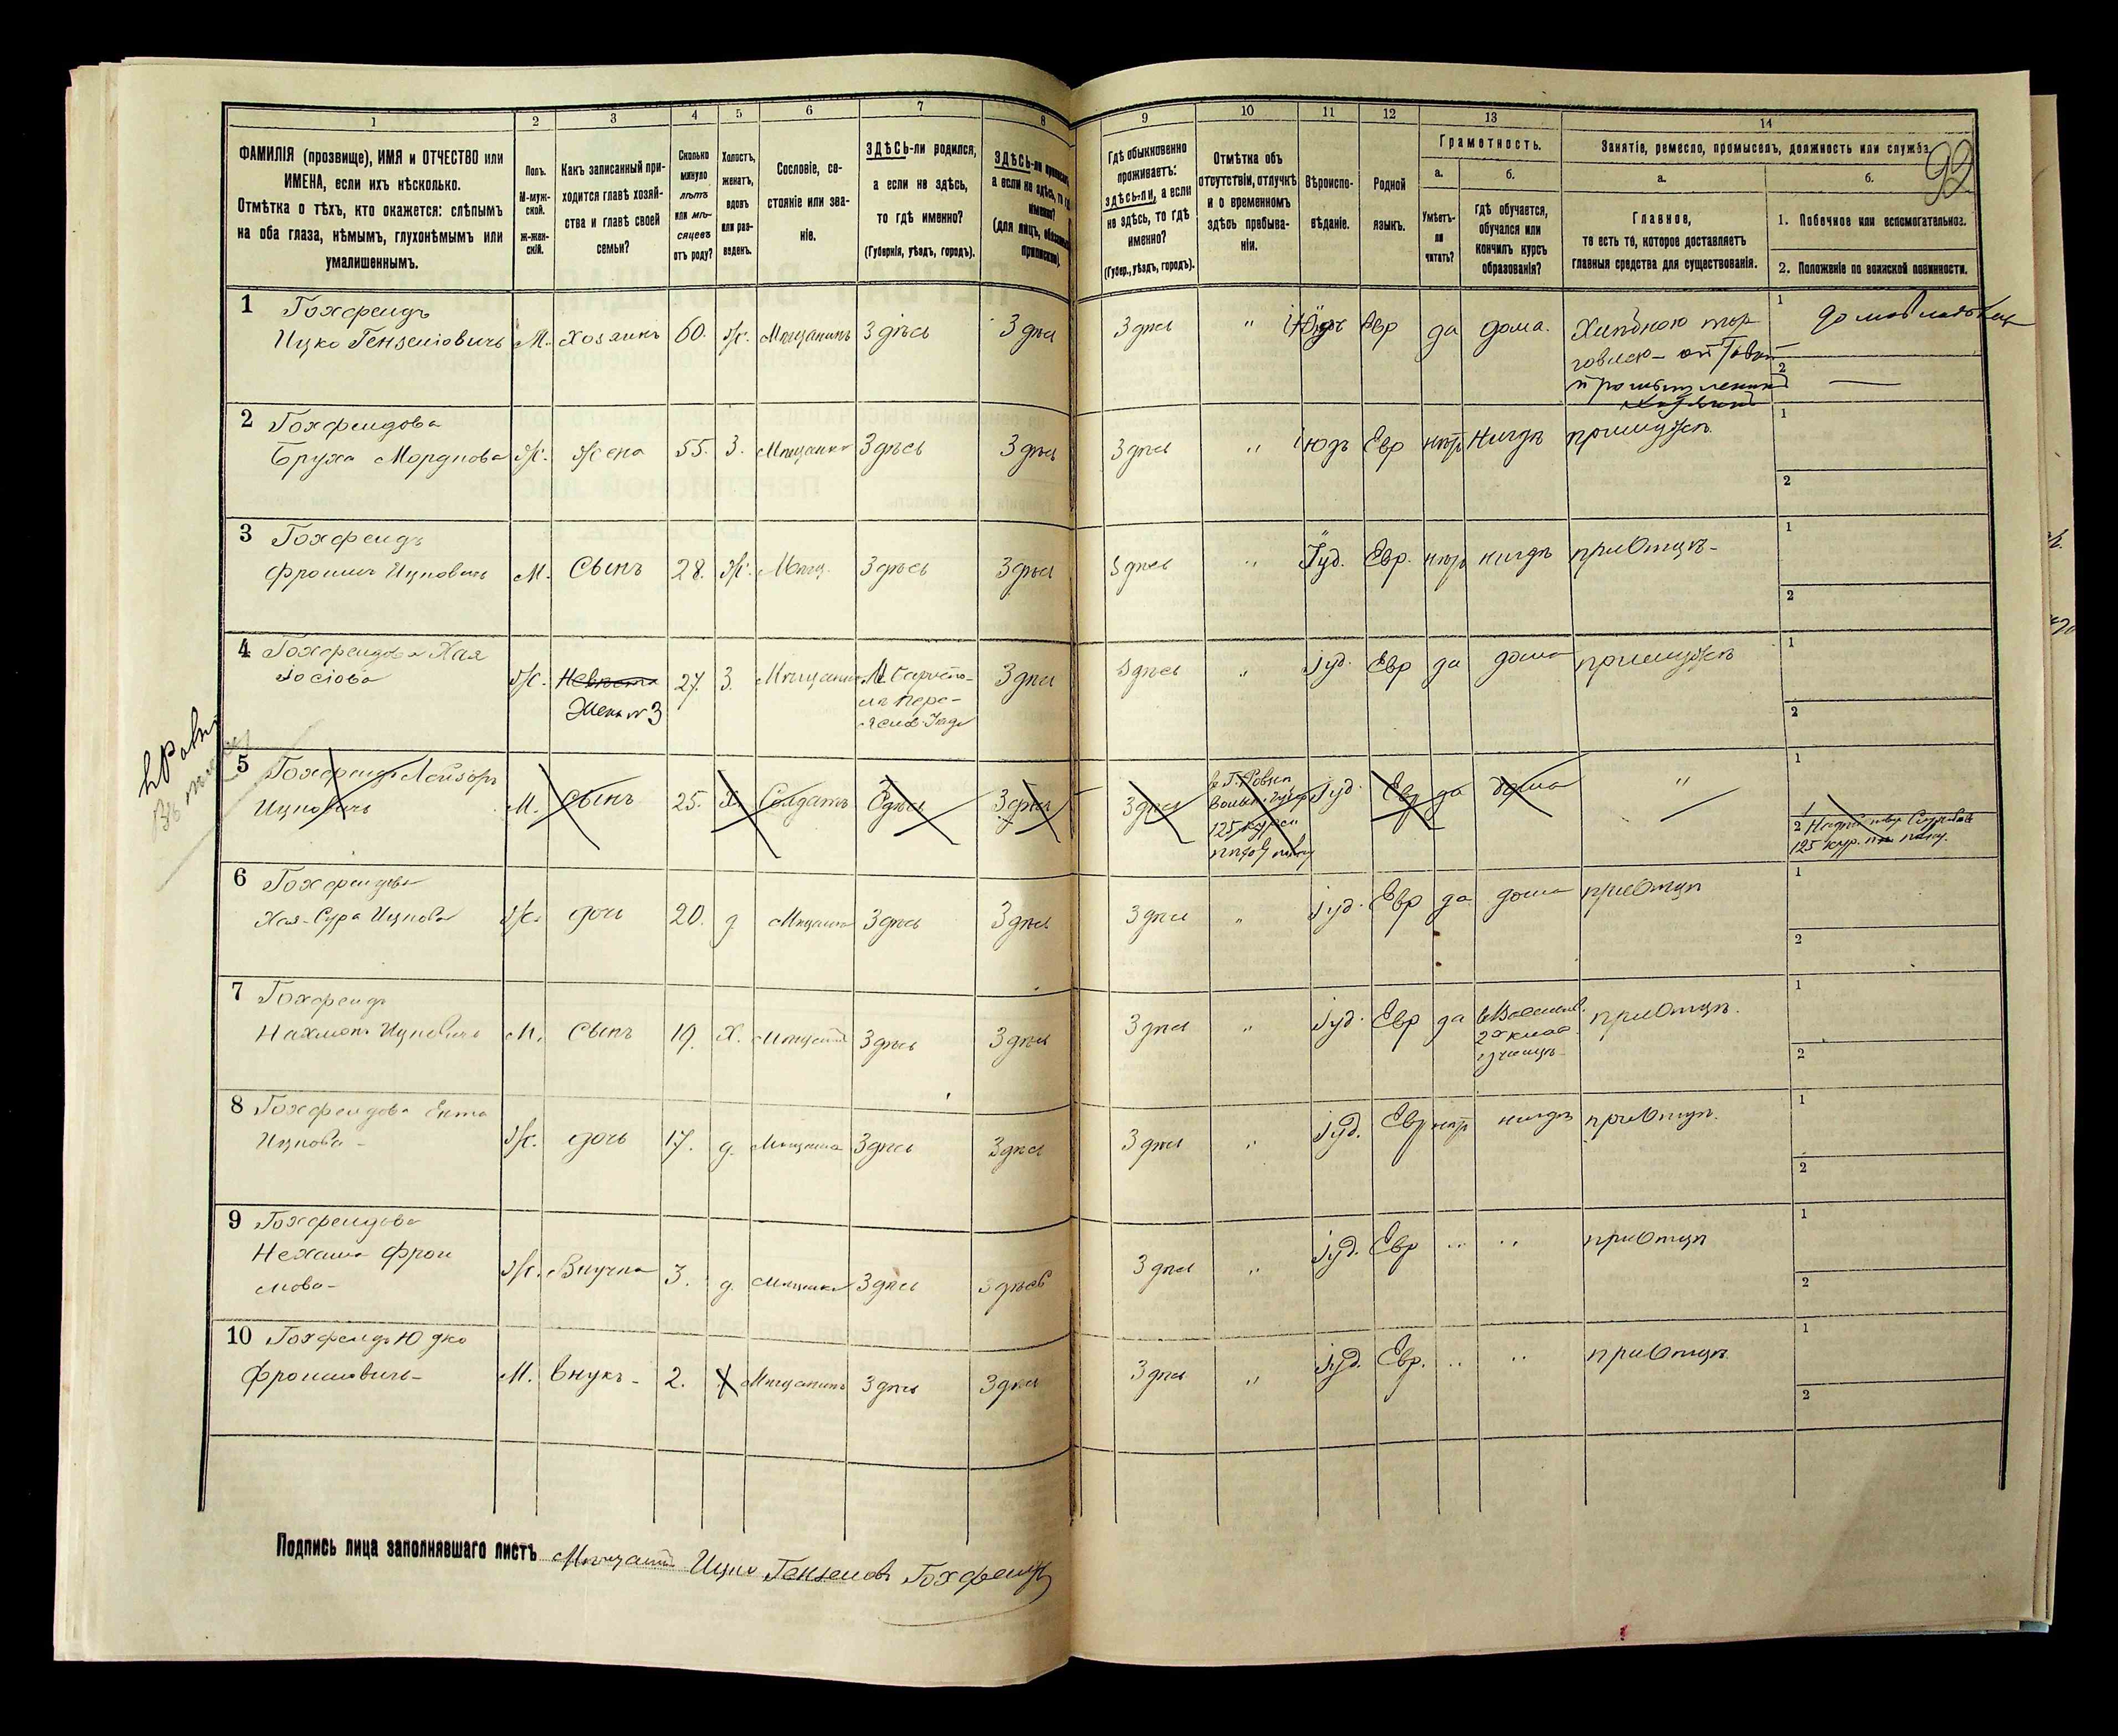 1
2
3
4
5
6
7
8
ФАМИЛІЯ (прозвище), ИМЯ и ОТЧЕСТВО или
ИМЕНА, если ихъ нѣсколько.
Отмѣтка о тѣхъ, кто окажется: слѣпымъ
на оба глаза, нѣмымъ, глухонѣмымъ или
умалишеннымъ.
Полъ.
М-муж-
ской.
Ж-жен-
скій.
Какъ записанный при-
ходится главѣ хозяй-
ства и главѣ своей
семьи?
Сколько
минуло
лѣтъ
или мѣ-
сяцевъ
отъ роду?
Холостъ,
женатъ,
вдовъ
или раз-
веденъ.
Сословіе, со-
стояніе или зва-
ніе.
ЗДѢСЬ-ли родился,
а если не здѣсь,
то гдѣ именно?
(Губернія, уѣздъ, городъ).
ЗДѢСЬ-ли приписанъ,
а если не здѣсь, то гдѣ
именно?
(для лицъ, обязанныхъ
припискою).
9
10
11
12
13
14
92
Гдѣ обыкновенно
проживаетъ:
здѣсь-ли, а если
не здѣсь, то гдѣ
именно?
(Губер., уѣздъ, городъ).
Отмѣтка объ
отсутствіи, отлучкѣ
и о временномъ
здѣсь пребыва-
ніи.
Вѣроиспо-
вѣданіе.
Родной
языкъ.
Грамотность.
а.
б.
Умѣетъ-
ли
читать?
Гдѣ обучается,
обучался или
кончилъ курсъ
образованія?
Занятіе, ремесло, промыселъ, должность или служба.
а.
б.
Главное,
то есть то, которое доставляетъ
главныя средства для существованія.
1. Побочное или вспомогательное.
2. Положеніе по воинской повинности.
1 Гохфельдъ
Ицко Гензеліовичъ М. хозяинъ 60. ж. Мѣщанинъ Здѣсь Здѣсь Здѣсь " Евр да дома. 1
2 —
2 Гохфельдова
Бруха Мордкова Ж. Жена 55. З. Мѣщанка Здѣсь Здѣсь Здѣсь " Іюдъ Евр нѣтъ Нигдѣ при мужѣ 1
2
3 Гохфельдъ
Фроимъ Ицковичъ М. Сынъ 28. Ж. Мѣщ. Здѣсь Здѣсь Здѣсь " Іуд. Евр. нѣтъ нигдѣ при Отцѣ- 1
2
4 Гохфельдова Хая
Іосіова Ж. Невѣстка 27. З. Мѣщанка Здѣсь Здѣсь " Іуд. Евр да дома при мужѣ 1
Жена №3
2
5 Гохфельдъ Лейзоръ
Ицковичъ М. Сынъ 25. Х. Солдатъ Здѣсь Здѣсь Здѣсь Іуд. Евр да дома " 1
2
6 Гохфельдова
Хая-Сура Ицкова Ж. дочь 20. д. Мѣщанка Здѣсь Здѣсь Здѣсь " Іуд. Евр да дома при Отцѣ 1
2
7 Гохфельдъ
Нахманъ Ицковичъ М. Сынъ 19. Х. Здѣсь Здѣсь Здѣсь " Іуд. Евр да при Отцѣ. 1
2
8 Гохфельдова Ента
Ицкова - Ж. дочь 17. д. Мѣщанка Здѣсь Здѣсь Здѣсь " Іуд. Евр нѣтъ нигдѣ при Отцѣ. 1
2
9 Гохфельдова
Нехама Фрои
мова- Ж. Внучка 3. д. Мѣщанка Здѣсь Здѣсь Здѣсь " Іуд. Евр " " при Отцѣ 1
2
10 Гохфельдъ Юдко
Фроимовичъ- М. Внукъ- 2. Х Мѣщанинъ Здѣсь Здѣсь Здѣсь " Іуд. Евр. " " при Отцѣ. 1
2
Подпись лица заполнявшаго листъ Мѣщанинъ Ицко Гензелевъ Гохфельдъ